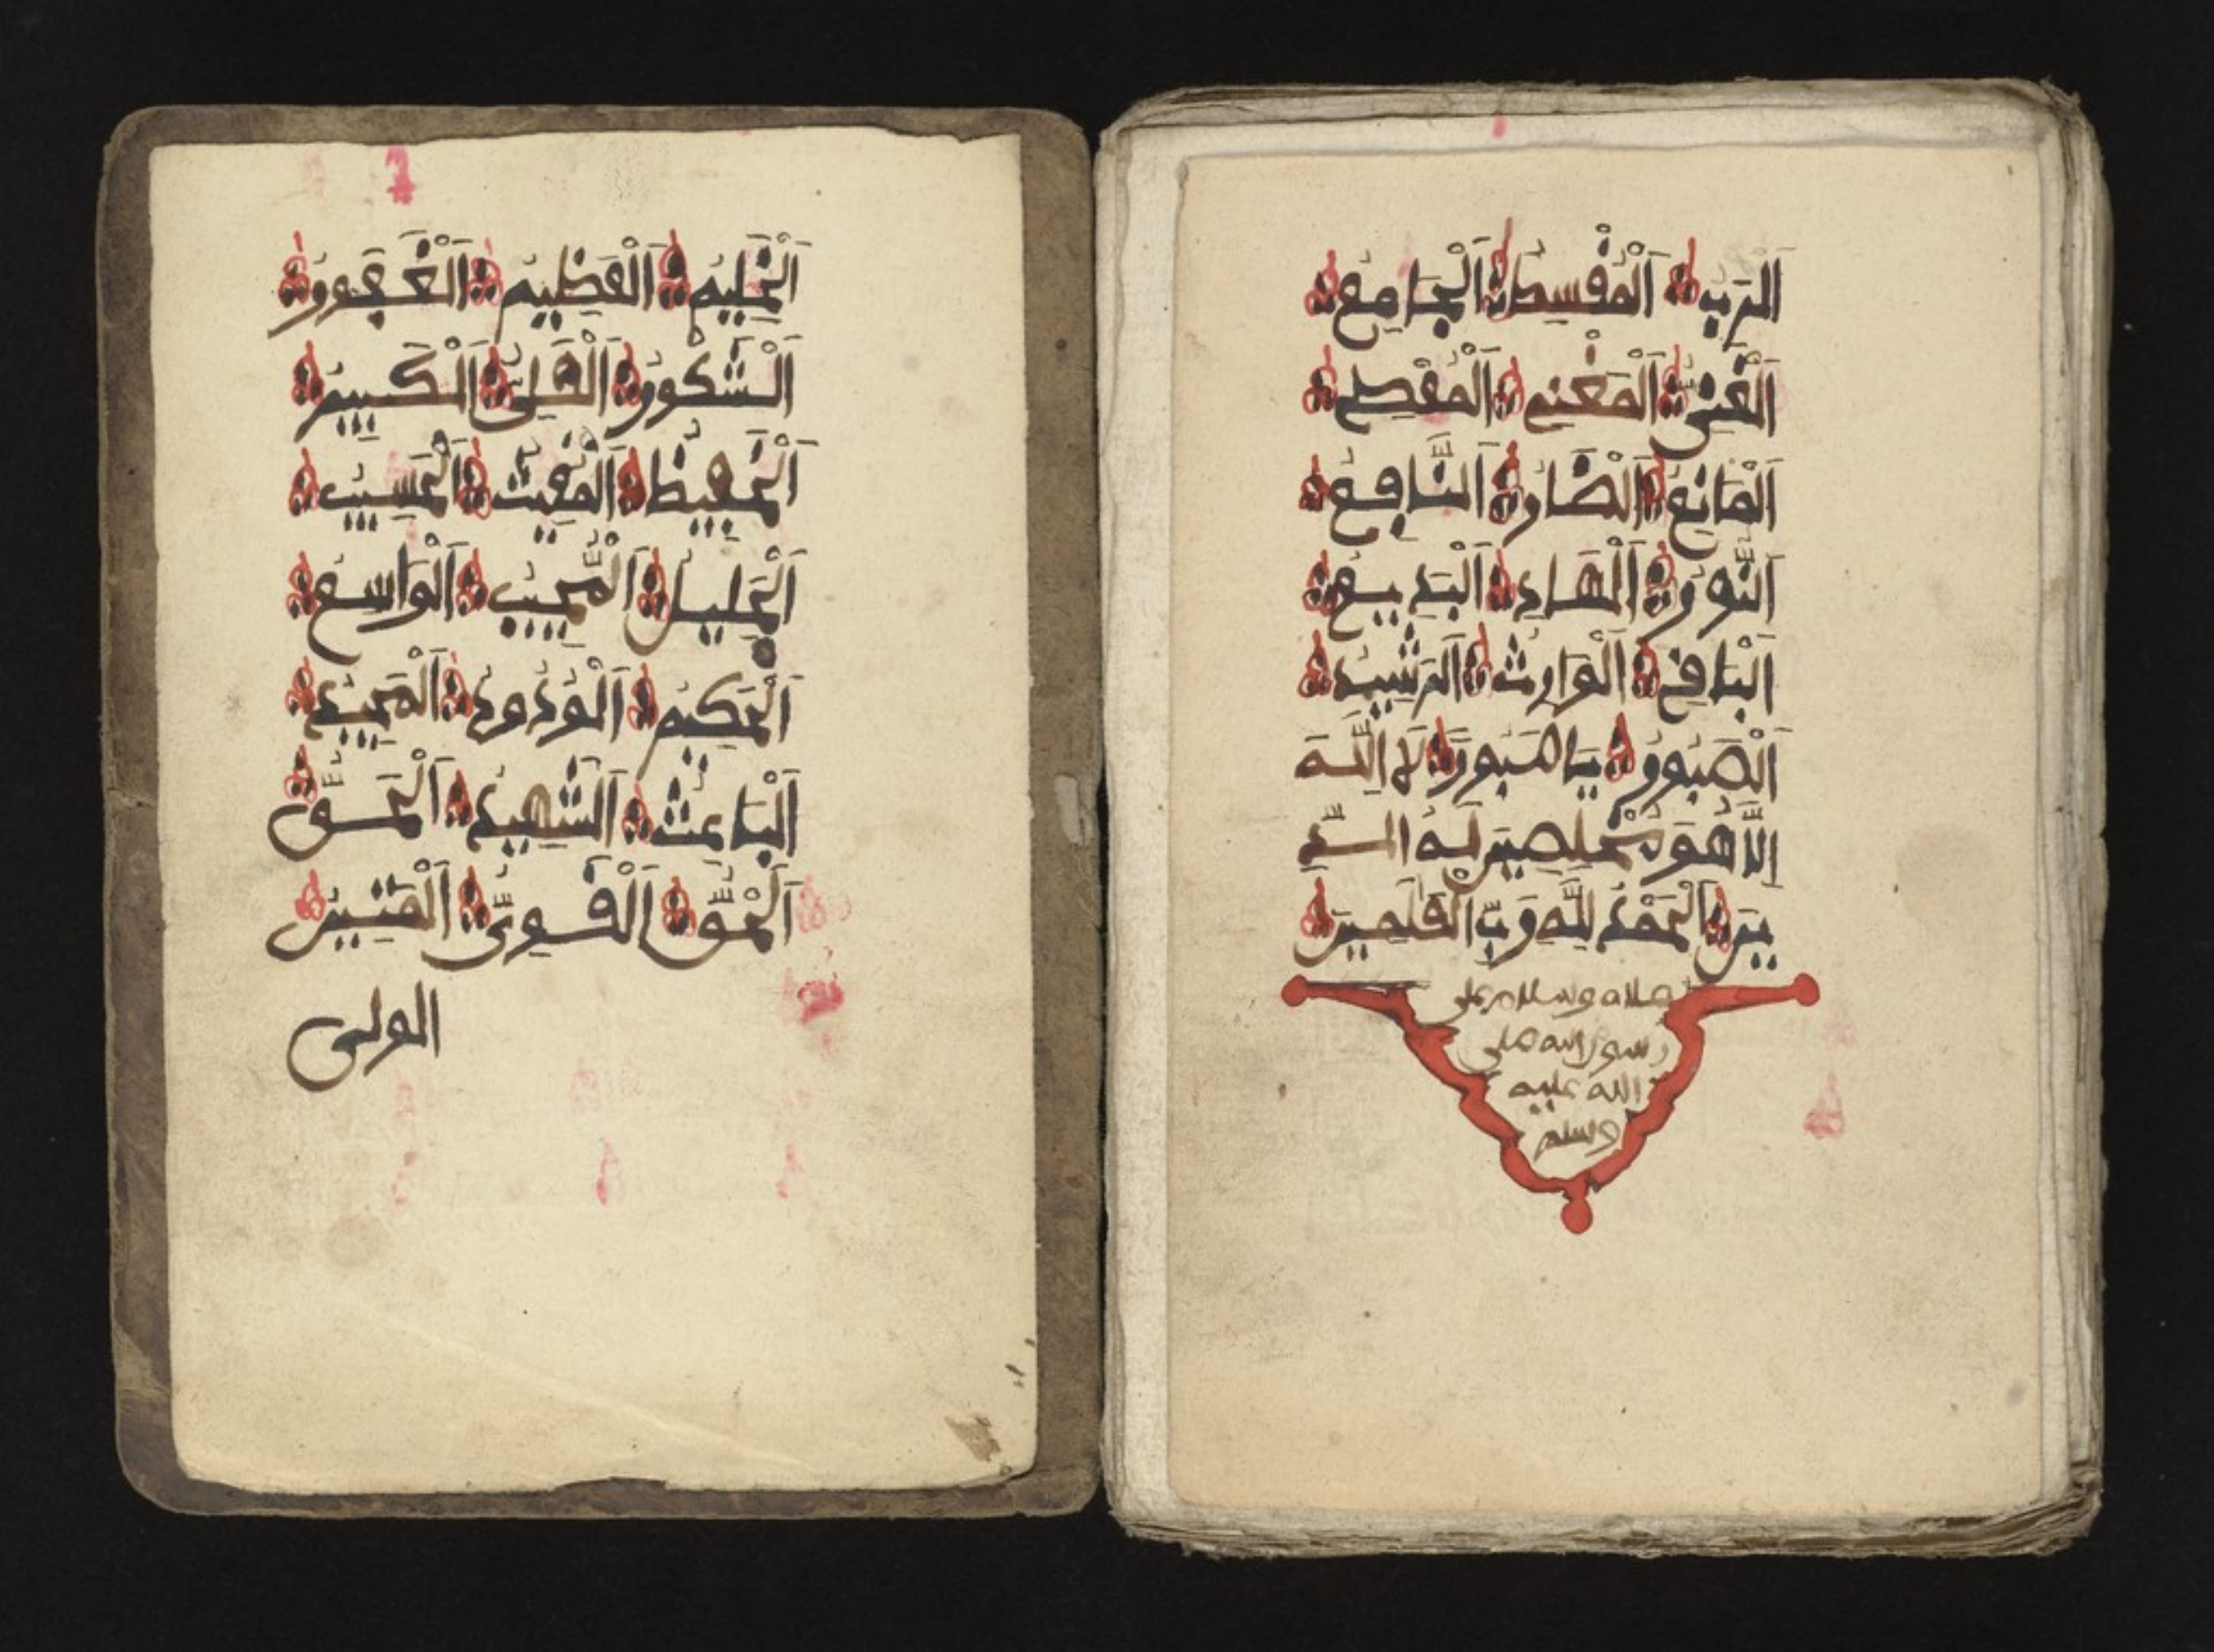 الرب المقسط الجامع
الغنى المغنى المعطى
المانع الضار النافع
النور الهاد البديع
الباقى الوارث الرشيد
الصبور يا صبور لا اله
الا هو مخلصين له الد
ين الحمد لله رب العلمين
صلاه وسلام على
رسول الله صلى
الله عليه
وسلم
الحليم العظيم الغفور
الشكور العلى الكبير
الحفيظ المقيت الحسيب
الجليل المجيب الواسع
الحكيم الودود المجيد
الباعث الشهيد الحق
الحق القوى المتين
الولى